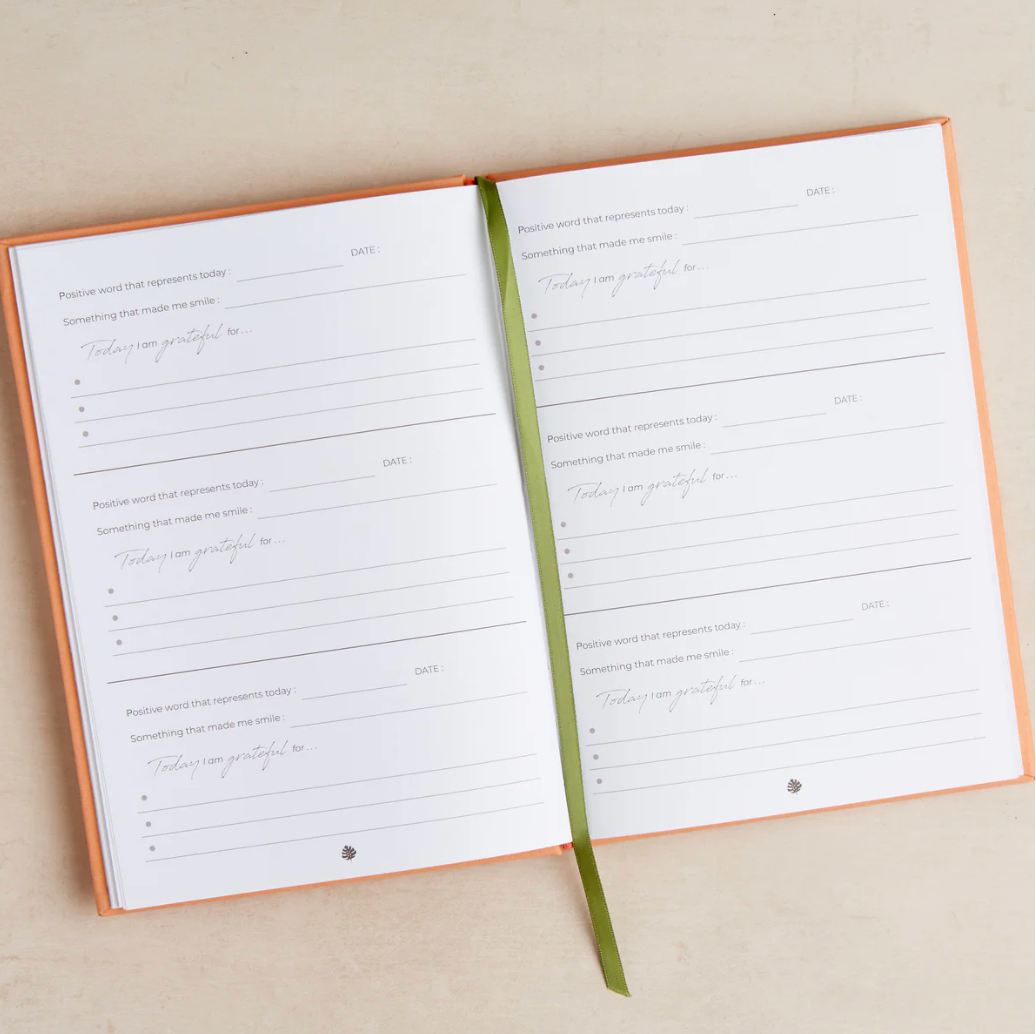 DATE :
Positive word that represents today :
Something that made me smile :
Today I am grateful for...
DATE :
Positive word that represents today :
Something that made me smile :
Today I am grateful for...
DATE :
Positive word that represents today :
Something that made me smile :
Today I am grateful for...
DATE :
Positive word that represents today :
Something that made me smile :
Today I am grateful for...
DATE :
Positive word that represents today :
Something that made me smile :
Today I am grateful for...
DATE :
Positive word that represents today :
Something that made me smile :
Today I am grateful for...